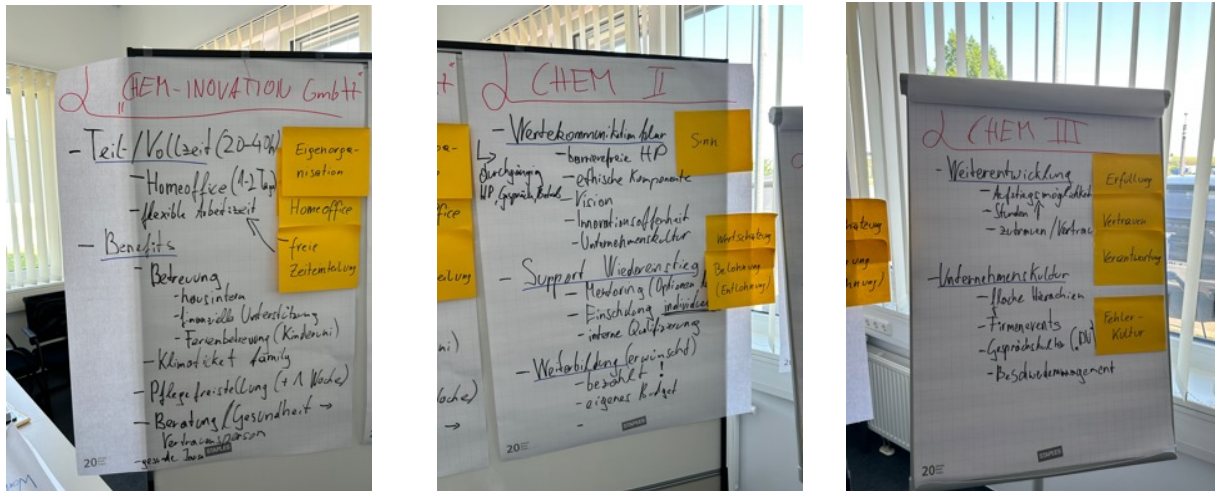 "CHEM-INOVATION GmbH"
- Teil-/Vollzeit (20-40h)
- Homeoffice (1-2 Tage)
- flexible Arbeitszeit
- Benefits
- Betreuung
- hausintern
- finanzielle Unterstützung
- Ferienbetreuung (Kinderuni)
- Klimaticket family
- Pflegefreistellung (+ 1 Woche)
- Beratung / Gesundheit →
Vertrauensperson
- gesunde Jause
Eigenorga-
nisation
Homeoffice
freie
Zeiteinteilung
20
STAPLES
CHEM II
- Wertekommunikation klar
↳ durchgängig
HP, Gespräch,
- barrierefreie HP
- ethische Komponente
- Vision
- Innovationsoffenheit
- Unternehmenskultur
- Support Wiedereinstieg
- Mentoring (Optionen
- Einschulung individuell
- interne Qualifizierung
- Weiterbildung (erwünscht)
- bezahlt !
- eigenes Budget
-
Sinn
Wertschätzung
Belohnung
(Entlohnung)
20
STAPLES
CHEM III
- Weiterentwicklung
- Aufstiegsmöglichkeit
- Stunden ↑
- zutrauen / Vertrau
- Unternehmenskultur
- flache Hierachien
- Firmenevents
- Gesprächskultur ("DU"
- Beschwerdemanagement
Erfüllung
Vertrauen
Verantwortung
Fehler-
Kultur
20
STAPLES